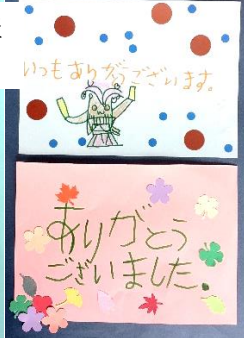 いつもありがとうございます。
ありがとう
ございました。